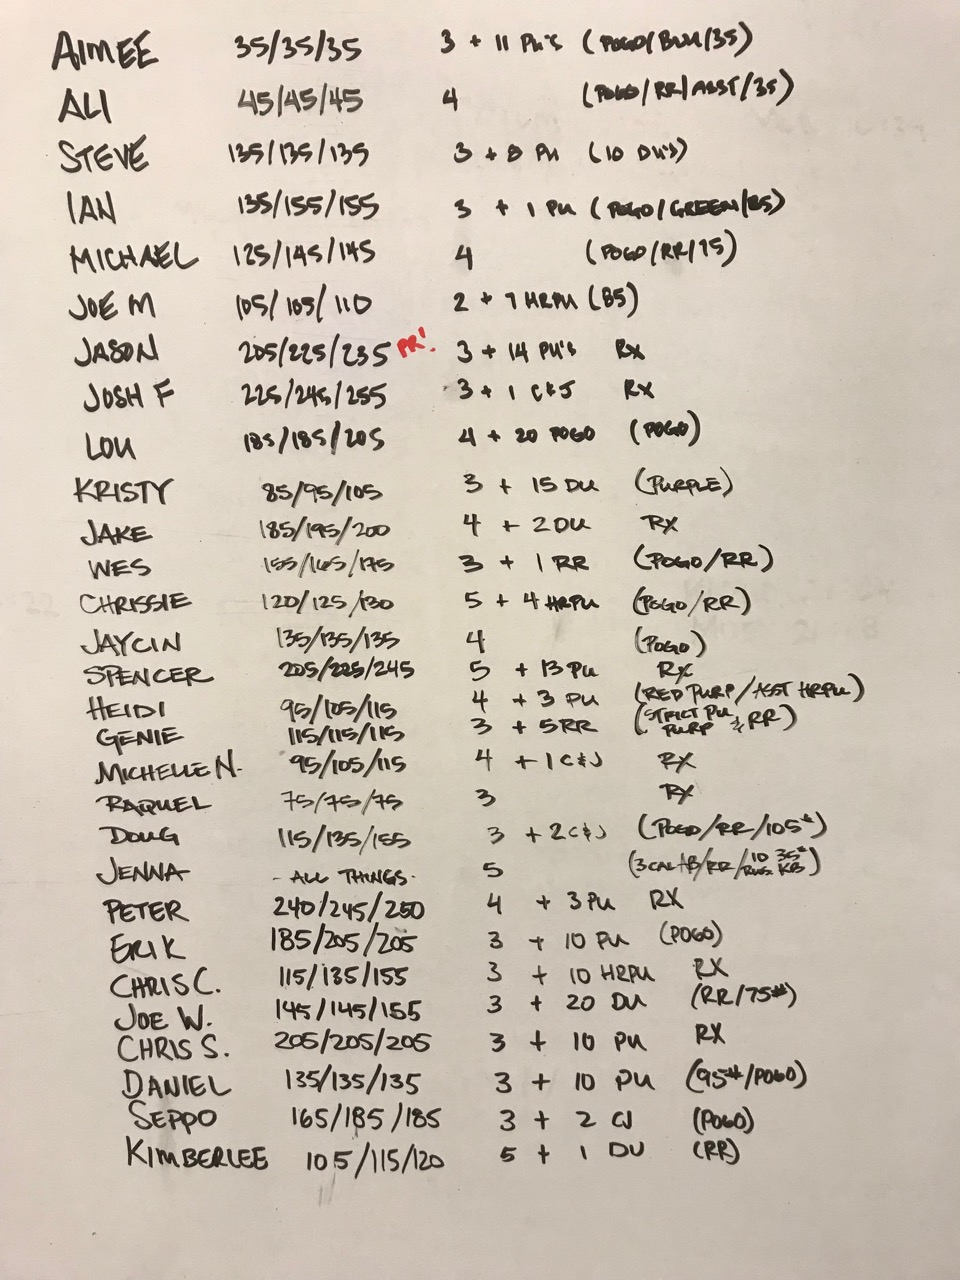 AIMEE 35/35/35 3 + 11 PU'S (POGO/BLU/35)
ALI 45/45/45 4 (POGO/RR/ASST/35)
STEVE 135/135/135 3 + 8 PU (10 DU'S)
IAN 135/155/155 3 + 1 PU (POGO/GREEN/85)
MICHAEL 125/145/145 4 (POGO/RR/75)
JOE M 105/105/110 2 + 7 HRPU (85)
JASON 205/225/235 PR! 3 + 14 PU'S RX
JOSH F 225/245/255 3 + 1 C&J RX
LOU 185/185/205 4 + 20 POGO (POGO)
KRISTY 85/95/105 3 + 15 DU (PURPLE)
JAKE 185/195/200 4 + 2 DU RX
WES 155/165/175 3 + 1 RR (POGO/RR)
CHRISSIE 120/125/130 5 + 4 HRPU (POGO/RR)
JAYCIN 135/135/135 4 (POGO)
SPENCER 205/225/245 5 + 13 PU RX
HEIDI 95/105/115 4 + 3 PU (RED PURP/ASST HRPU)
GENIE 115/115/115 3 + 5 RR (STRICT PU PURP & RR)
MICHELLE N. 95/105/115 4 + 1 C&J RX
RAQUEL 75/75/75 3 RX
DOUG 115/135/155 3 + 2 C&J (POGO/RR/105#)
JENNA - ALL THINGS - 5 (3 CAL AB/RR/10 RUS. 35# KB)
PETER 240/245/250 4 + 3 PU RX
ERIK 185/205/205 3 + 10 PU (POGO)
CHRIS C. 115/135/155 3 + 10 HRPU RX
JOE W. 145/145/155 3 + 20 DU (RR/75#)
CHRIS S. 205/205/205 3 + 10 PU RX
DANIEL 135/135/135 3 + 10 PU (95#/POGO)
SEPPO 165/185/185 3 + 2 CJ (POGO)
KIMBERLEE 105/115/120 5 + 1 DU (RR)